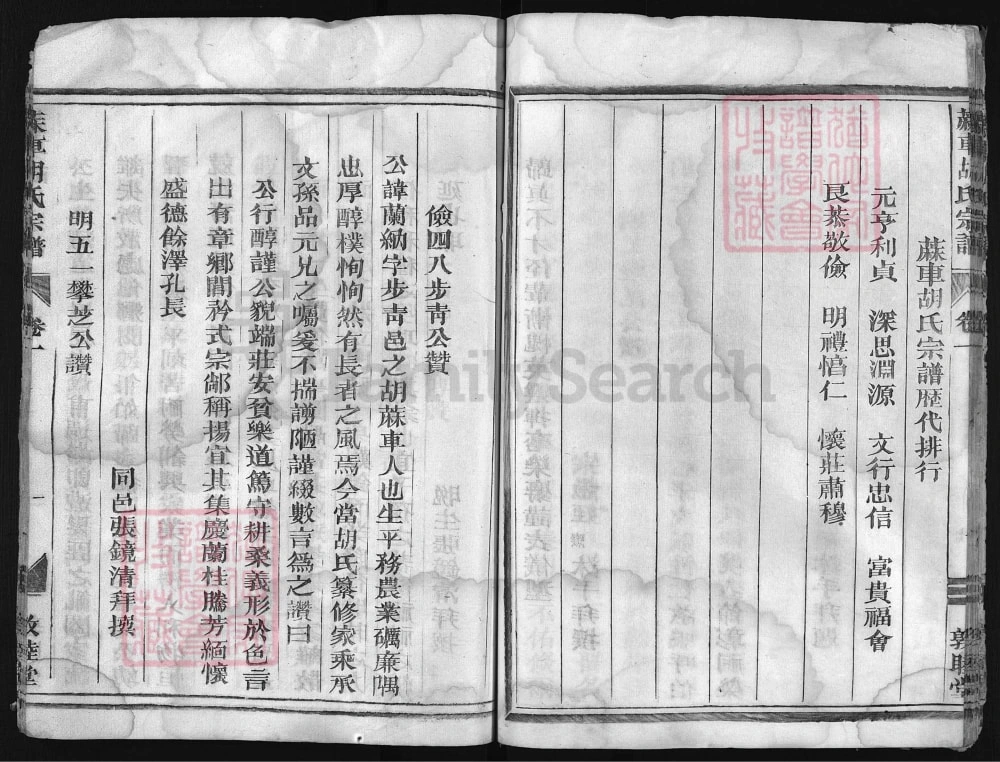 蔴車胡氏宗譜 卷一
蔴車胡氏宗譜歷代排行
元亨利貞 深思淵源 文行忠信 富貴福會
艮恭敬儉 明禮慆仁 懷莊肅穆
敦睦堂
儉四八步靑公贊
公諱蘭納字步靑邑之胡蔴車人也生平務農業礪廉隅
忠厚醇樸恂恂然有長者之風焉今當胡氏纂修家乘承
文孫品元兄之囑爰不揣謭陋謹綴數言爲之讚曰
公行醇謹公貌端莊安貧樂道篤守耕桑義形於色言
出有章鄉閭矜式宗鄰稱揚宜其集慶蘭桂騰芳緬懷
盛德餘澤孔長
同邑張鏡清拜撰
明五一攀芝公讚
蔴車胡氏宗譜 卷一 一 敦睦堂
FamilySearch